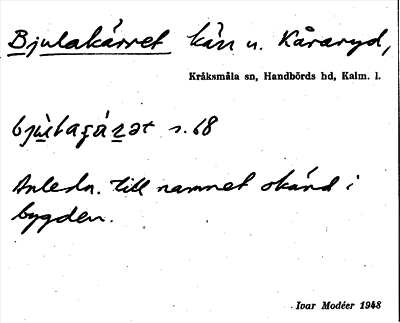 Bjulakärret kärr n. Kåraryd,
Kråksmåla sn, Handbörds hd, Kalm. l.
s. 68
Anledn. till namnet okänd i
bygden.
Ivar Modéer 1948